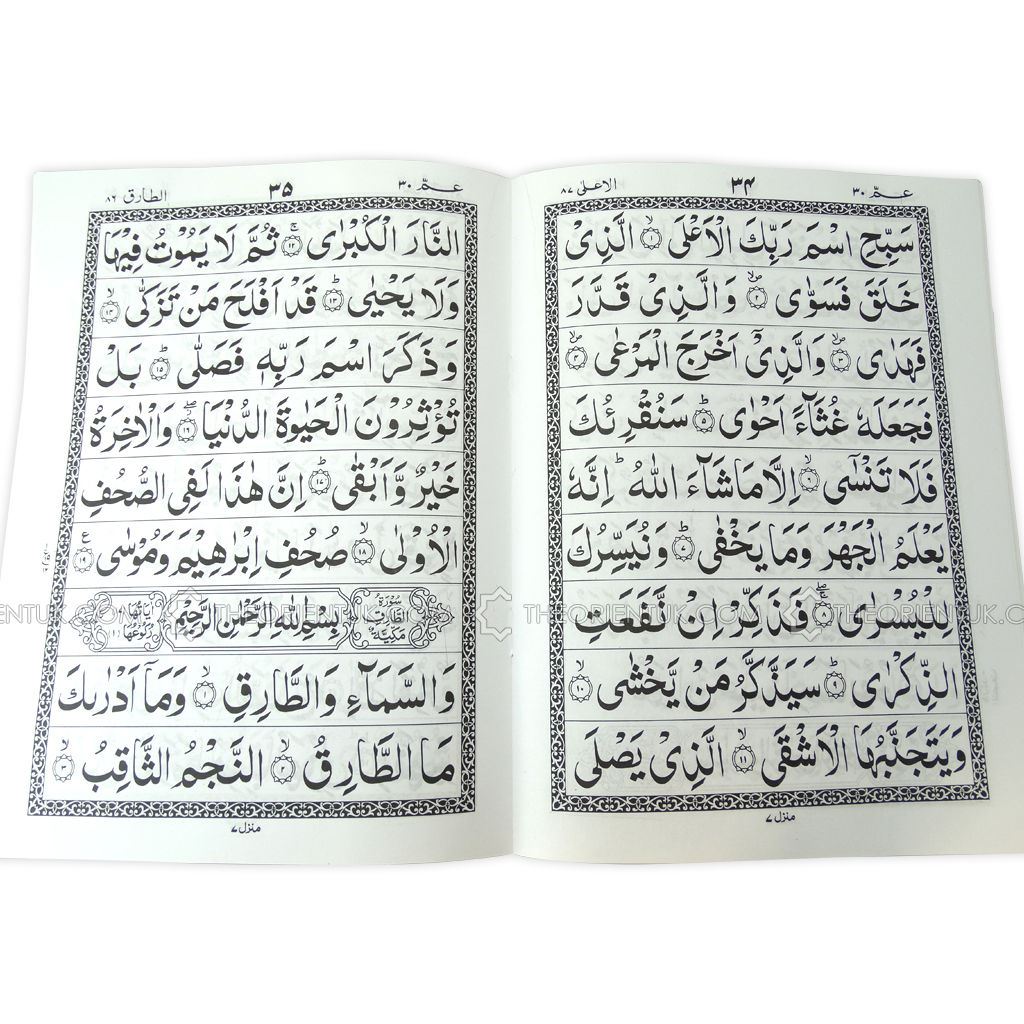 عمّ ٣٠ ٣٤ الاعلىٰ ٨٧
سَبِّحِ اسْمَ رَبِّكَ الْاَعْلَى ۙ﴿١﴾ الَّذِىْ
خَلَقَ فَسَوّٰى ۪ۙ﴿٢﴾ وَالَّذِىْ قَدَّرَ
فَهَدٰى ۪ۙ﴿٣﴾ وَالَّذِىْۤ اَخْرَجَ الْمَرْعٰى ۪ۙ﴿٤﴾
فَجَعَلَهٗ غُثَآءً اَحْوٰى ؕ﴿٥﴾ سَنُقْرِئُكَ
فَلَا تَنْسٰٓى ۙ﴿٦﴾ اِلَّا مَا شَآءَ اللّٰهُ ؕ اِنَّهٗ
يَعْلَمُ الْجَهْرَ وَمَا يَخْفٰى ؕ﴿٧﴾ وَنُيَسِّرُكَ
لِلْيُسْرٰى ۚۖ﴿٨﴾ فَذَكِّرْ اِنْ نَّفَعَتِ
الذِّكْرٰى ؕ﴿٩﴾ سَيَذَّكَّرُ مَنْ يَّخْشٰى ۙ﴿١٠﴾
وَيَتَجَنَّبُهَا الْاَشْقَى ۙ﴿١١﴾ الَّذِىْ يَصْلَى
منزل ٧
عمّ ٣٠ ٣٥ الطارق ٨٦
النَّارَ الْكُبْرٰى ۚ﴿١٢﴾ ثُمَّ لَا يَمُوْتُ فِيْهَا
وَلَا يَحْيٰى ؕ﴿١٣﴾ قَدْ اَفْلَحَ مَنْ تَزَكّٰى ۙ﴿١٤﴾
وَذَكَرَ اسْمَ رَبِّهٖ فَصَلّٰى ؕ﴿١٥﴾ بَلْ
تُؤْثِرُوْنَ الْحَيٰوةَ الدُّنْيَا ۖ﴿١٦﴾ وَالْاٰخِرَةُ
خَيْرٌ وَّاَبْقٰى ؕ﴿١٧﴾ اِنَّ هٰذَا لَفِى الصُّحُفِ
الْاُوْلٰى ۙ﴿١٨﴾ صُحُفِ اِبْرٰهِيْمَ وَمُوْسٰى ﴿١٩﴾ ع
سُوْرَةُ الطَّارِقِ مَكِّيَّةٌ بِسْمِ اللّٰهِ الرَّحْمٰنِ الرَّحِيْمِ
وَالسَّمَآءِ وَالطَّارِقِ ۙ﴿١﴾ وَمَاۤ اَدْرٰىكَ
مَا الطَّارِقُ ۙ﴿٢﴾ النَّجْمُ الثَّاقِبُ ۙ﴿٣﴾
منزل ٧
THEORIENTUK.COM